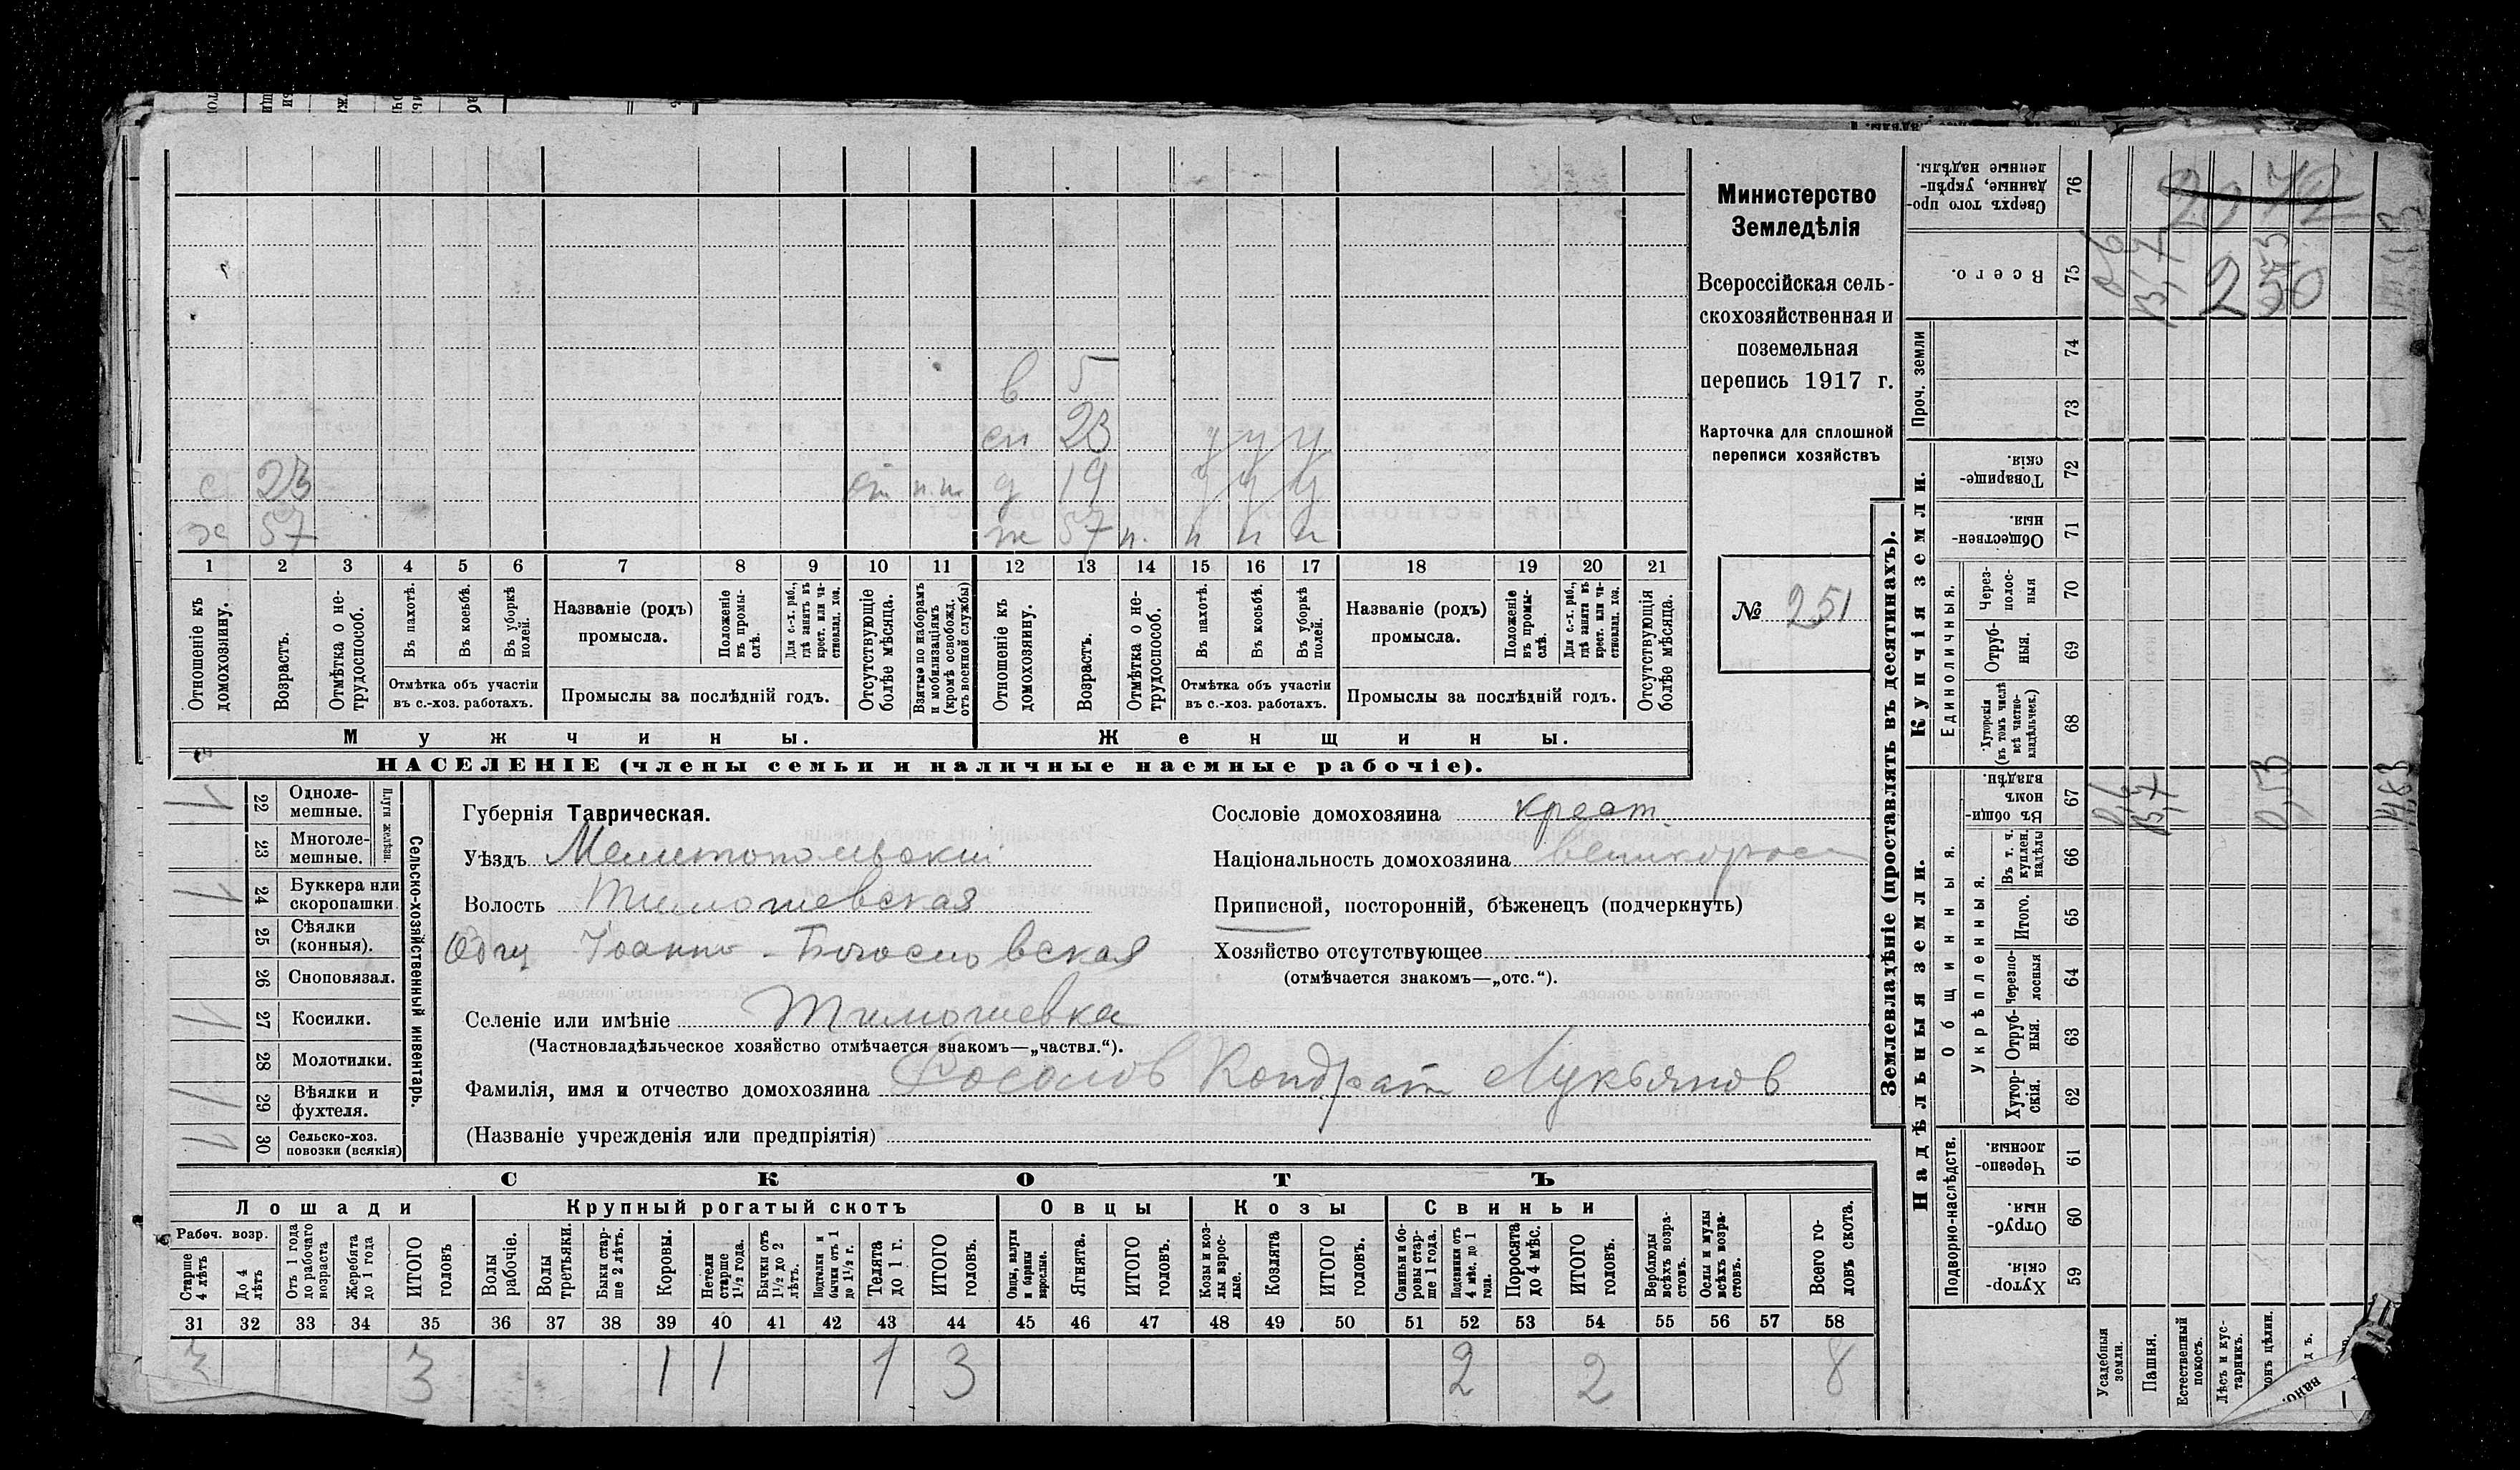 Министерство
Земледѣлія
Всероссійская сель-
скохозяйственная и
поземельная
перепись 1917 г.
Карточка для сплошной
переписи хозяйствъ
№ 251
в 5
сн 23 у у у
с 23 от п.т д 19 у у у
ж 57 п. п п п
х 57
1 2 3 4 5 6 7 8 9 10 11 12 13 14 15 16 17 18 19 20 21
Отношеніе къ домохозяину.
Возрастъ.
Отмѣтка о не-трудоспособ.
Въ пахотѣ.
Въ косьбѣ.
Въ уборкѣ полей.
Отмѣтка объ участіи
въ с.-хоз. работахъ.
Названіе (родъ)
промысла.
Положеніе въ промы-слѣ.
Для с.-х. раб., гдѣ занятъ въ крест. или ча-стновлад. хоз.
Промыслы за послѣдній годъ.
Отсутствующіе болѣе мѣсяца.
Взятые по наборамъ и мобилизаціямъ (кромѣ освобожд. отъ военной службы)
Отношеніе къ домохозяину.
Возрастъ.
Отмѣтка о не-трудоспособ.
Въ пахотѣ.
Въ косьбѣ.
Въ уборкѣ полей.
Отмѣтка объ участіи
въ с.-хоз. работахъ.
Названіе (родъ)
промысла.
Положеніе въ промы-слѣ.
Для с.-х. раб., гдѣ занята въ крест. или ча-стновлад. хоз.
Промыслы за послѣдній годъ.
Отсутствующія болѣе мѣсяца.
Мужчины.
Женщины.
НАСЕЛЕНІЕ (члены семьи и наличные наемные рабочіе).
Сельско-хозяйственный инвентарь.
Плуги желѣзн.
1 22 Одноле-мешные.
23 Многоле-мешные.
1 24 Буккера или скоропашки
25 Сѣялки (конныя).
26 Сноповязал.
1 27 Косилки.
28 Молотилки.
1 29 Вѣялки и фухтеля.
1 30 Сельско-хоз. повозки (всякія)
Губернія Таврическая.
Уѣздъ Мелитопольскій
Волость Тимошевская
Общ Іоанно-Богословская
Селеніе или имѣніе Тимошевка
(Частновладѣльческое хозяйство отмѣчается знакомъ—„частвл.“).
Фамилія, имя и отчество домохозяина Кондрат Лукьянов
(Названіе учрежденія или предпріятія)
Сословіе домохозяина крест.
Національность домохозяина великорос
Приписной, посторонній, бѣженецъ (подчеркнуть)
Хозяйство отсутствующее
(отмѣчается знакомъ—„отс.“).
СКОТЪ
Лошади
Крупный рогатый скотъ
Овцы
Козы
Свиньи
Рабоч. возр.
Старше 4 лѣтъ
До 4 лѣтъ
Отъ 1 года до рабочаго возраста
Жеребята до 1 года
ИТОГО головъ
Волы рабочіе.
Волы третьяки.
Быки стар-ше 2 лѣтъ.
Коровы.
Нетели старше 1½ года.
Бычки отъ 1½ до 2 лѣтъ.
Подтелки и бычки отъ 1 до 1½ г.
Телята до 1 г.
ИТОГО головъ.
Овцы, валухи и бараны взрослые.
Ягнята.
ИТОГО головъ.
Козы и коз-лы взрос-лые.
Козлята
ИТОГО головъ.
Свиньи и бо-ровы стар-ше 1 года.
Подсвинки отъ 4 мѣс. до 1 года.
Поросята до 4 мѣс.
ИТОГО головъ.
Верблюды всѣхъ возра-стовъ.
Ослы и мулы всѣхъ возра-стовъ.
Всего го-ловъ скота.
31 32 33 34 35 36 37 38 39 40 41 42 43 44 45 46 47 48 49 50 51 52 53 54 55 56 57 58
3 3 1 1 1 3 2 2 8
Землевладѣніе (проставлять въ десятинахъ).
Надѣльныя земли.
Купчія земли.
Проч. земли
Подворно-наслѣдств.
Общинныя.
Укрѣпленныя.
Единоличныя.
Сверхъ того про-данные, укрѣп-ленные надѣлы. 76
Всего. 75
74
73
Товарище-скія. 72
Обществен-ныя. 71
Через-полос-ныя 70
Отруб-ныя. 69
Хуторскія (въ томъ числѣ всѣ частно-владѣльческ.) 68
Въ общин-номъ владѣн. 67
Въ т. ч. куплен. надѣлы 66
Итого. 65
Черезпо-лосныя 64
Отруб-ныя. 63
Хутор-скія. 62
Черезпо-лосныя. 61
Отруб-ныя. 60
Хутор-скія. 59
Усадебныя земли.
Пашня.
Естественный покосъ.
Лѣсъ и кус-тарникъ.
0,6
13,7
0,53
14,83